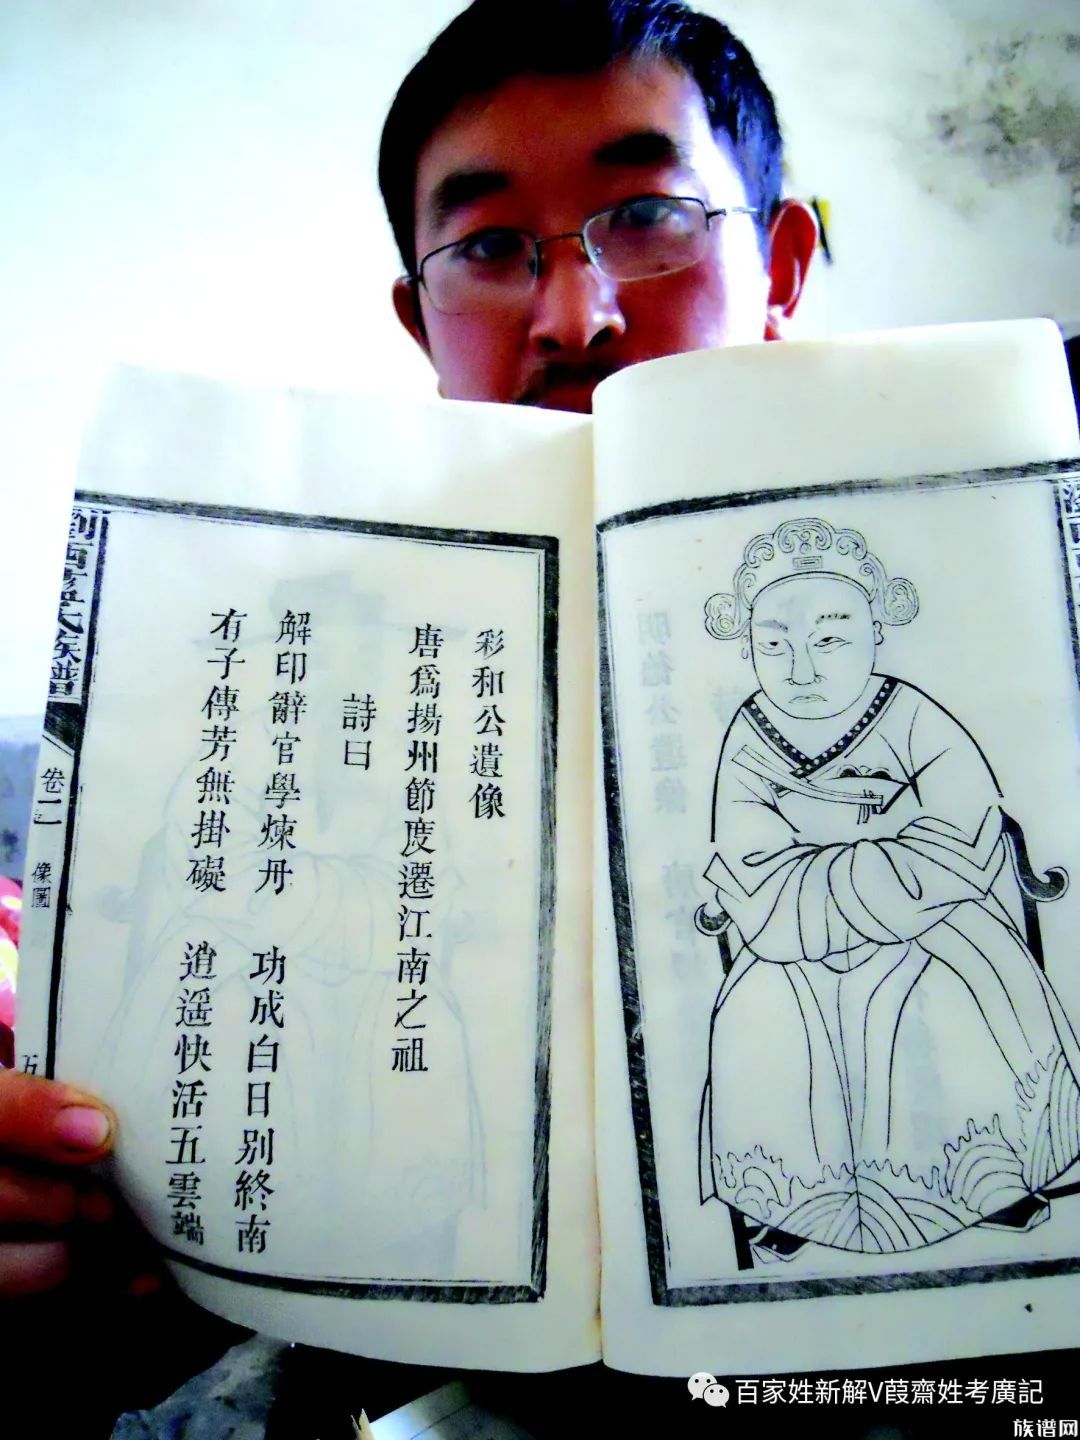 彩和公遺像
唐爲揚州節度遷江南之祖
詩曰
解印辭官學煉丹 功成白日別終南
有子傳芳無掛礙 逍遥快活五雲端
劉西 氏族譜
卷二
像圖
五
百家姓新解V葭齋姓考廣記
族谱网